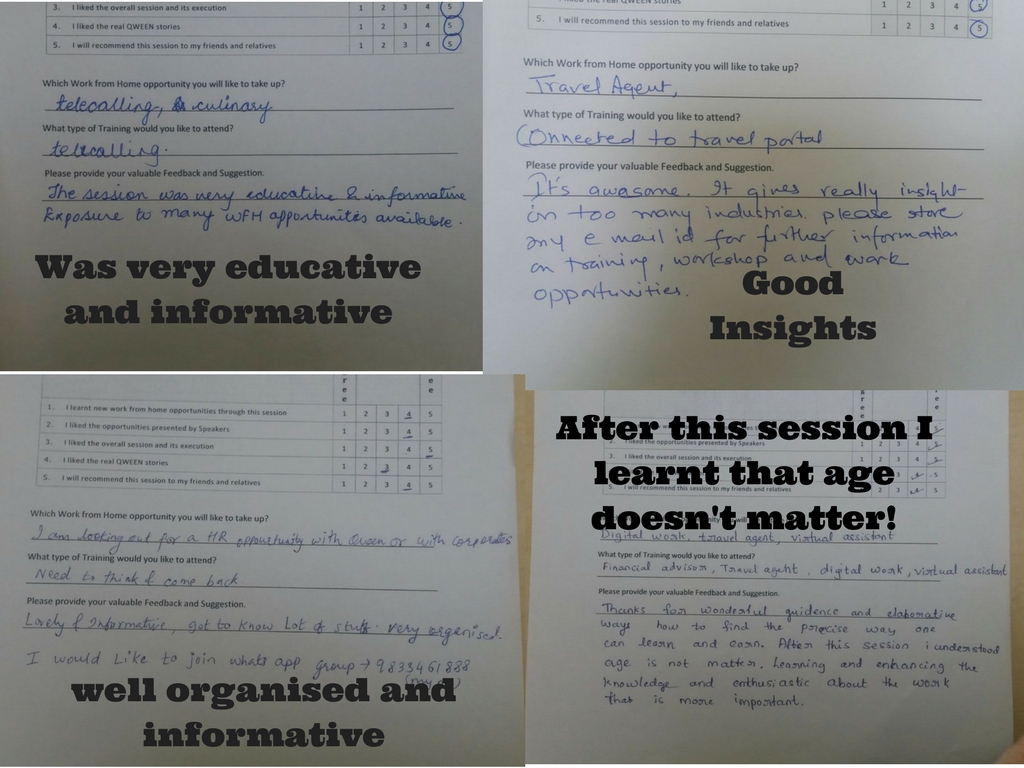 3. I liked the overall session and its execution 1 2 3 4 5
4. I liked the real QWEEN stories 1 2 3 4 5
5. I will recommend this session to my friends and relatives 1 2 3 4 5
Which Work from Home opportunity you will like to take up?
telecalling, culinary
What type of Training would you like to attend?
telecalling.
Please provide your valuable Feedback and Suggestion.
The session was very educative & informative
Exposure to many WFH opportunities available.
Was very educative
and informative
I liked the real QWEEN stories 1 2 3 4 5
5. I will recommend this session to my friends and relatives 1 2 3 4 5
Which Work from Home opportunity you will like to take up?
Travel Agent,
What type of Training would you like to attend?
Connected to travel portal
Please provide your valuable Feedback and Suggestion.
It's awasome. It gives really insight
in too many industries. please store
any e mail id for further information
on training, workshop and work
opportunities.
Good
Insights
r e e
e e
1. I learnt new work from home opportunities through this session 1 2 3 4 5
2. I liked the opportunities presented by Speakers 1 2 3 4 5
3. I liked the overall session and its execution 1 2 3 4 5
4. I liked the real QWEEN stories 1 2 3 4 5
5. I will recommend this session to my friends and relatives 1 2 3 4 5
Which Work from Home opportunity you will like to take up?
I am looking out for a HR oppourtunity with Queen or with corporates
What type of Training would you like to attend?
Need to think & come back
Please provide your valuable Feedback and Suggestion.
Lovely & Informative, got to know Lot of stuff. very organised.
I would Like to join whats app group → 9833461888
well organised and
informative
After this session I
learnt that age
doesn't matter!
2. I liked the opportunities presented by Speakers 1 2 3 4 5
3. I liked the overall session and its execution 1 2 3 4
5. I will recommend this session to my friends and relatives 2 3 5
Digital work, travel agent, virtual assistant
What type of Training would you like to attend?
Financial advisor, Travel agent, digital work, virtual assistant
Please provide your valuable Feedback and Suggestion.
Thanks for wonderful guidence and elaborative
ways how to find the porecise way one
can learn and earn. After this session i understood
age is not matter. Learning and enhancing the
knowledge and enthusiastic about the work
that is more important.